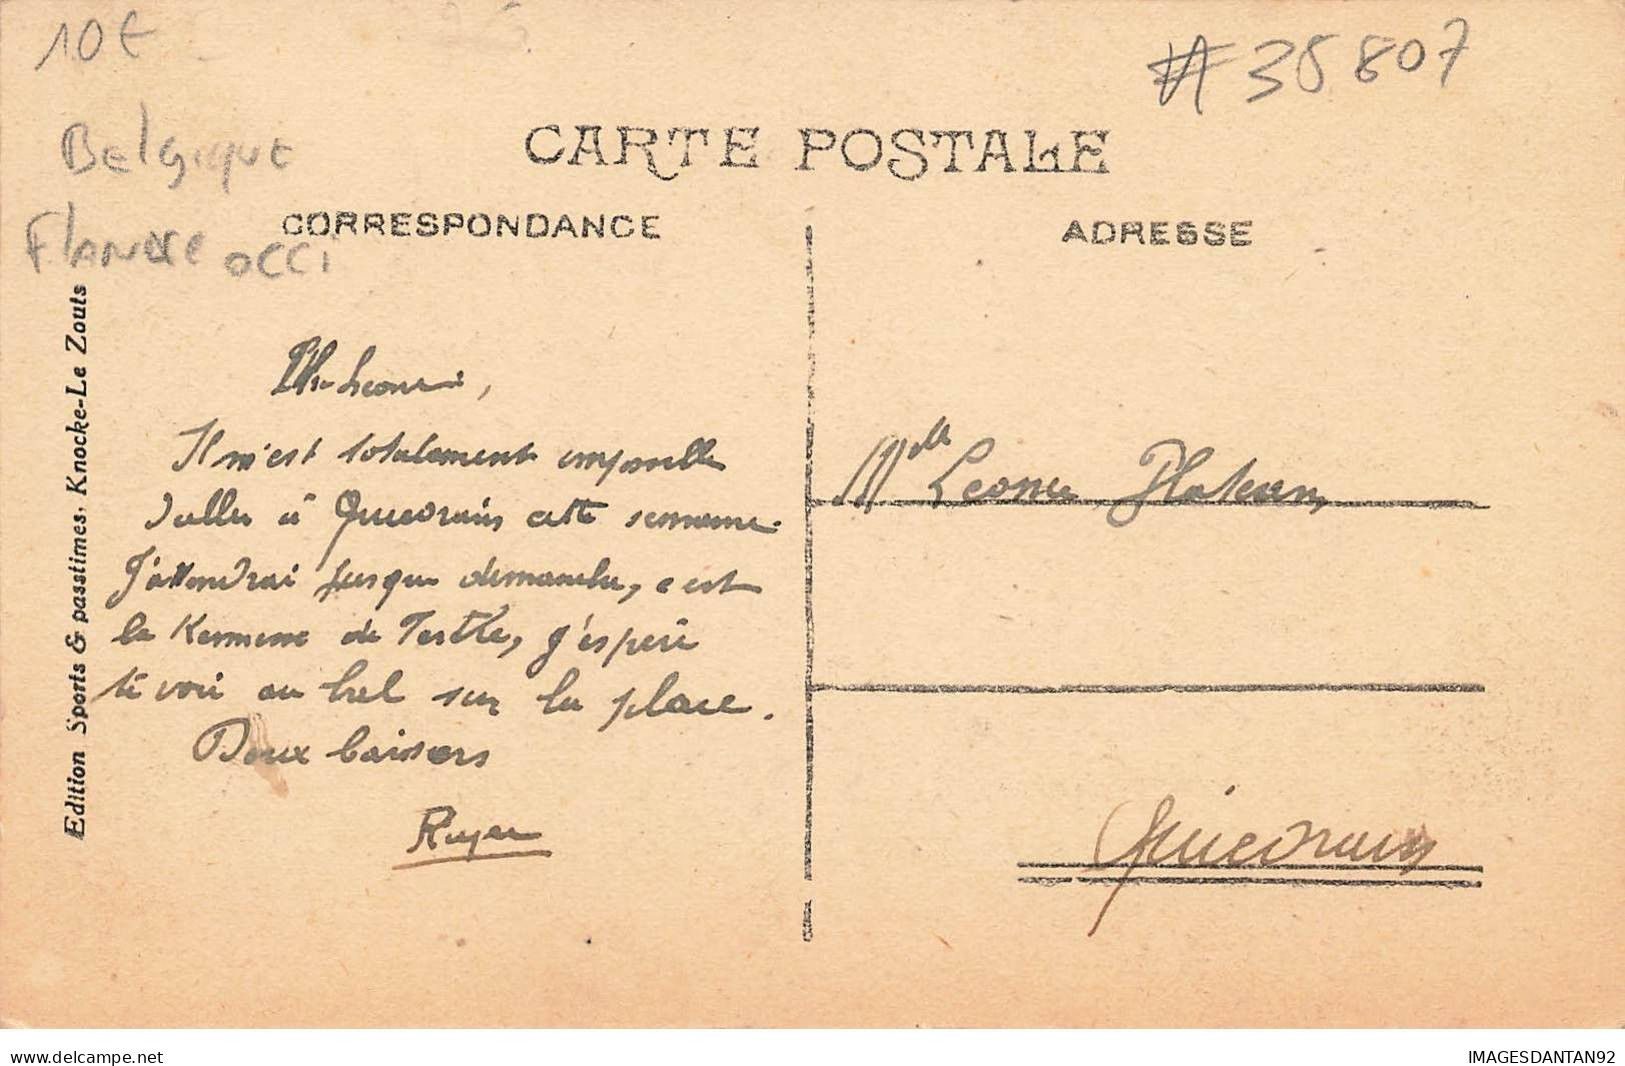 10€
#35807
Belgique
Flandre occi
CARTE POSTALE
CORRESPONDANCE
ADRESSE
Edition Sports & pastimes, Knocke-Le Zouts
Il m'est totalement impossible
d'aller à Quiévrain cette semaine.
J'attendrai jusque dimanche, c'est
la Kermesse de Tertre, j'espère
te voir au bal sur la place.
Doux baisers
Mlle Léonce
Quiévrain
delcampe.net
IMAGESDANTAN92